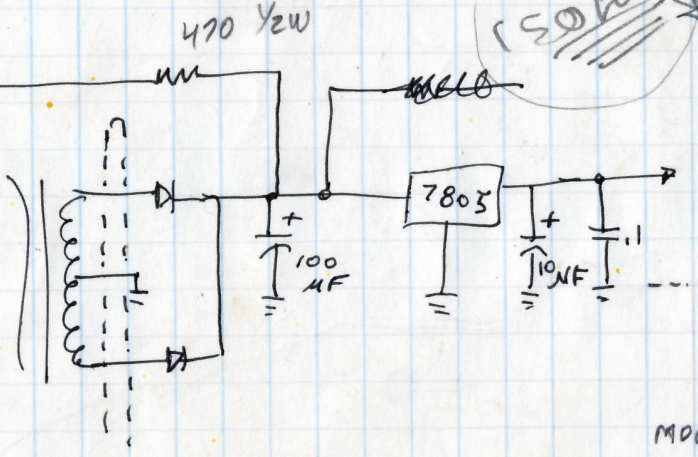 470 1/2W
7805
+
100
µF
+
10µF
.1